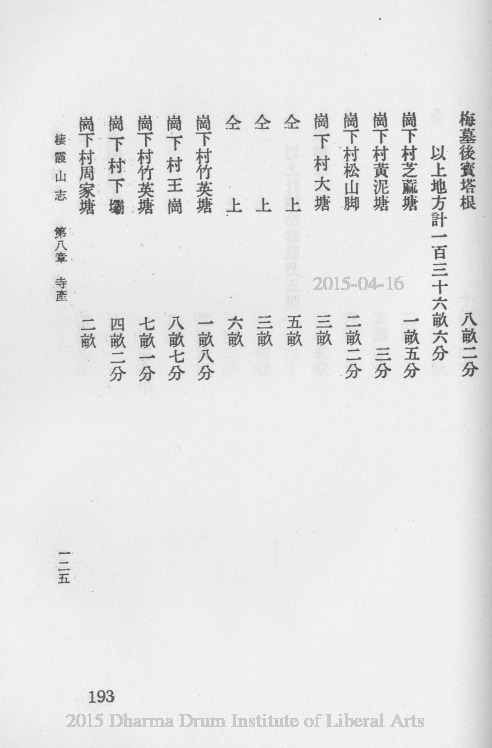 梅墓後寶塔根　八畝二分
以上地方計一百三十六畝六分
崗下村芝蔴塘　一畝五分
崗下村黃泥塘　三分
崗下村松山脚　二畝二分
崗下村大塘　三畝
仝上　五畝
仝上　三畝
仝上　六畝
崗下村竹英塘　一畝八分
崗下村王崗　八畝七分
崗下村竹英塘　七畝一分
崗下村下壩　四畝二分
崗下村周家塘　二畝
棲霞山志　第八章　寺產　一二五
2015-04-16
193
2015 Dharma Drum Institute of Liberal Arts